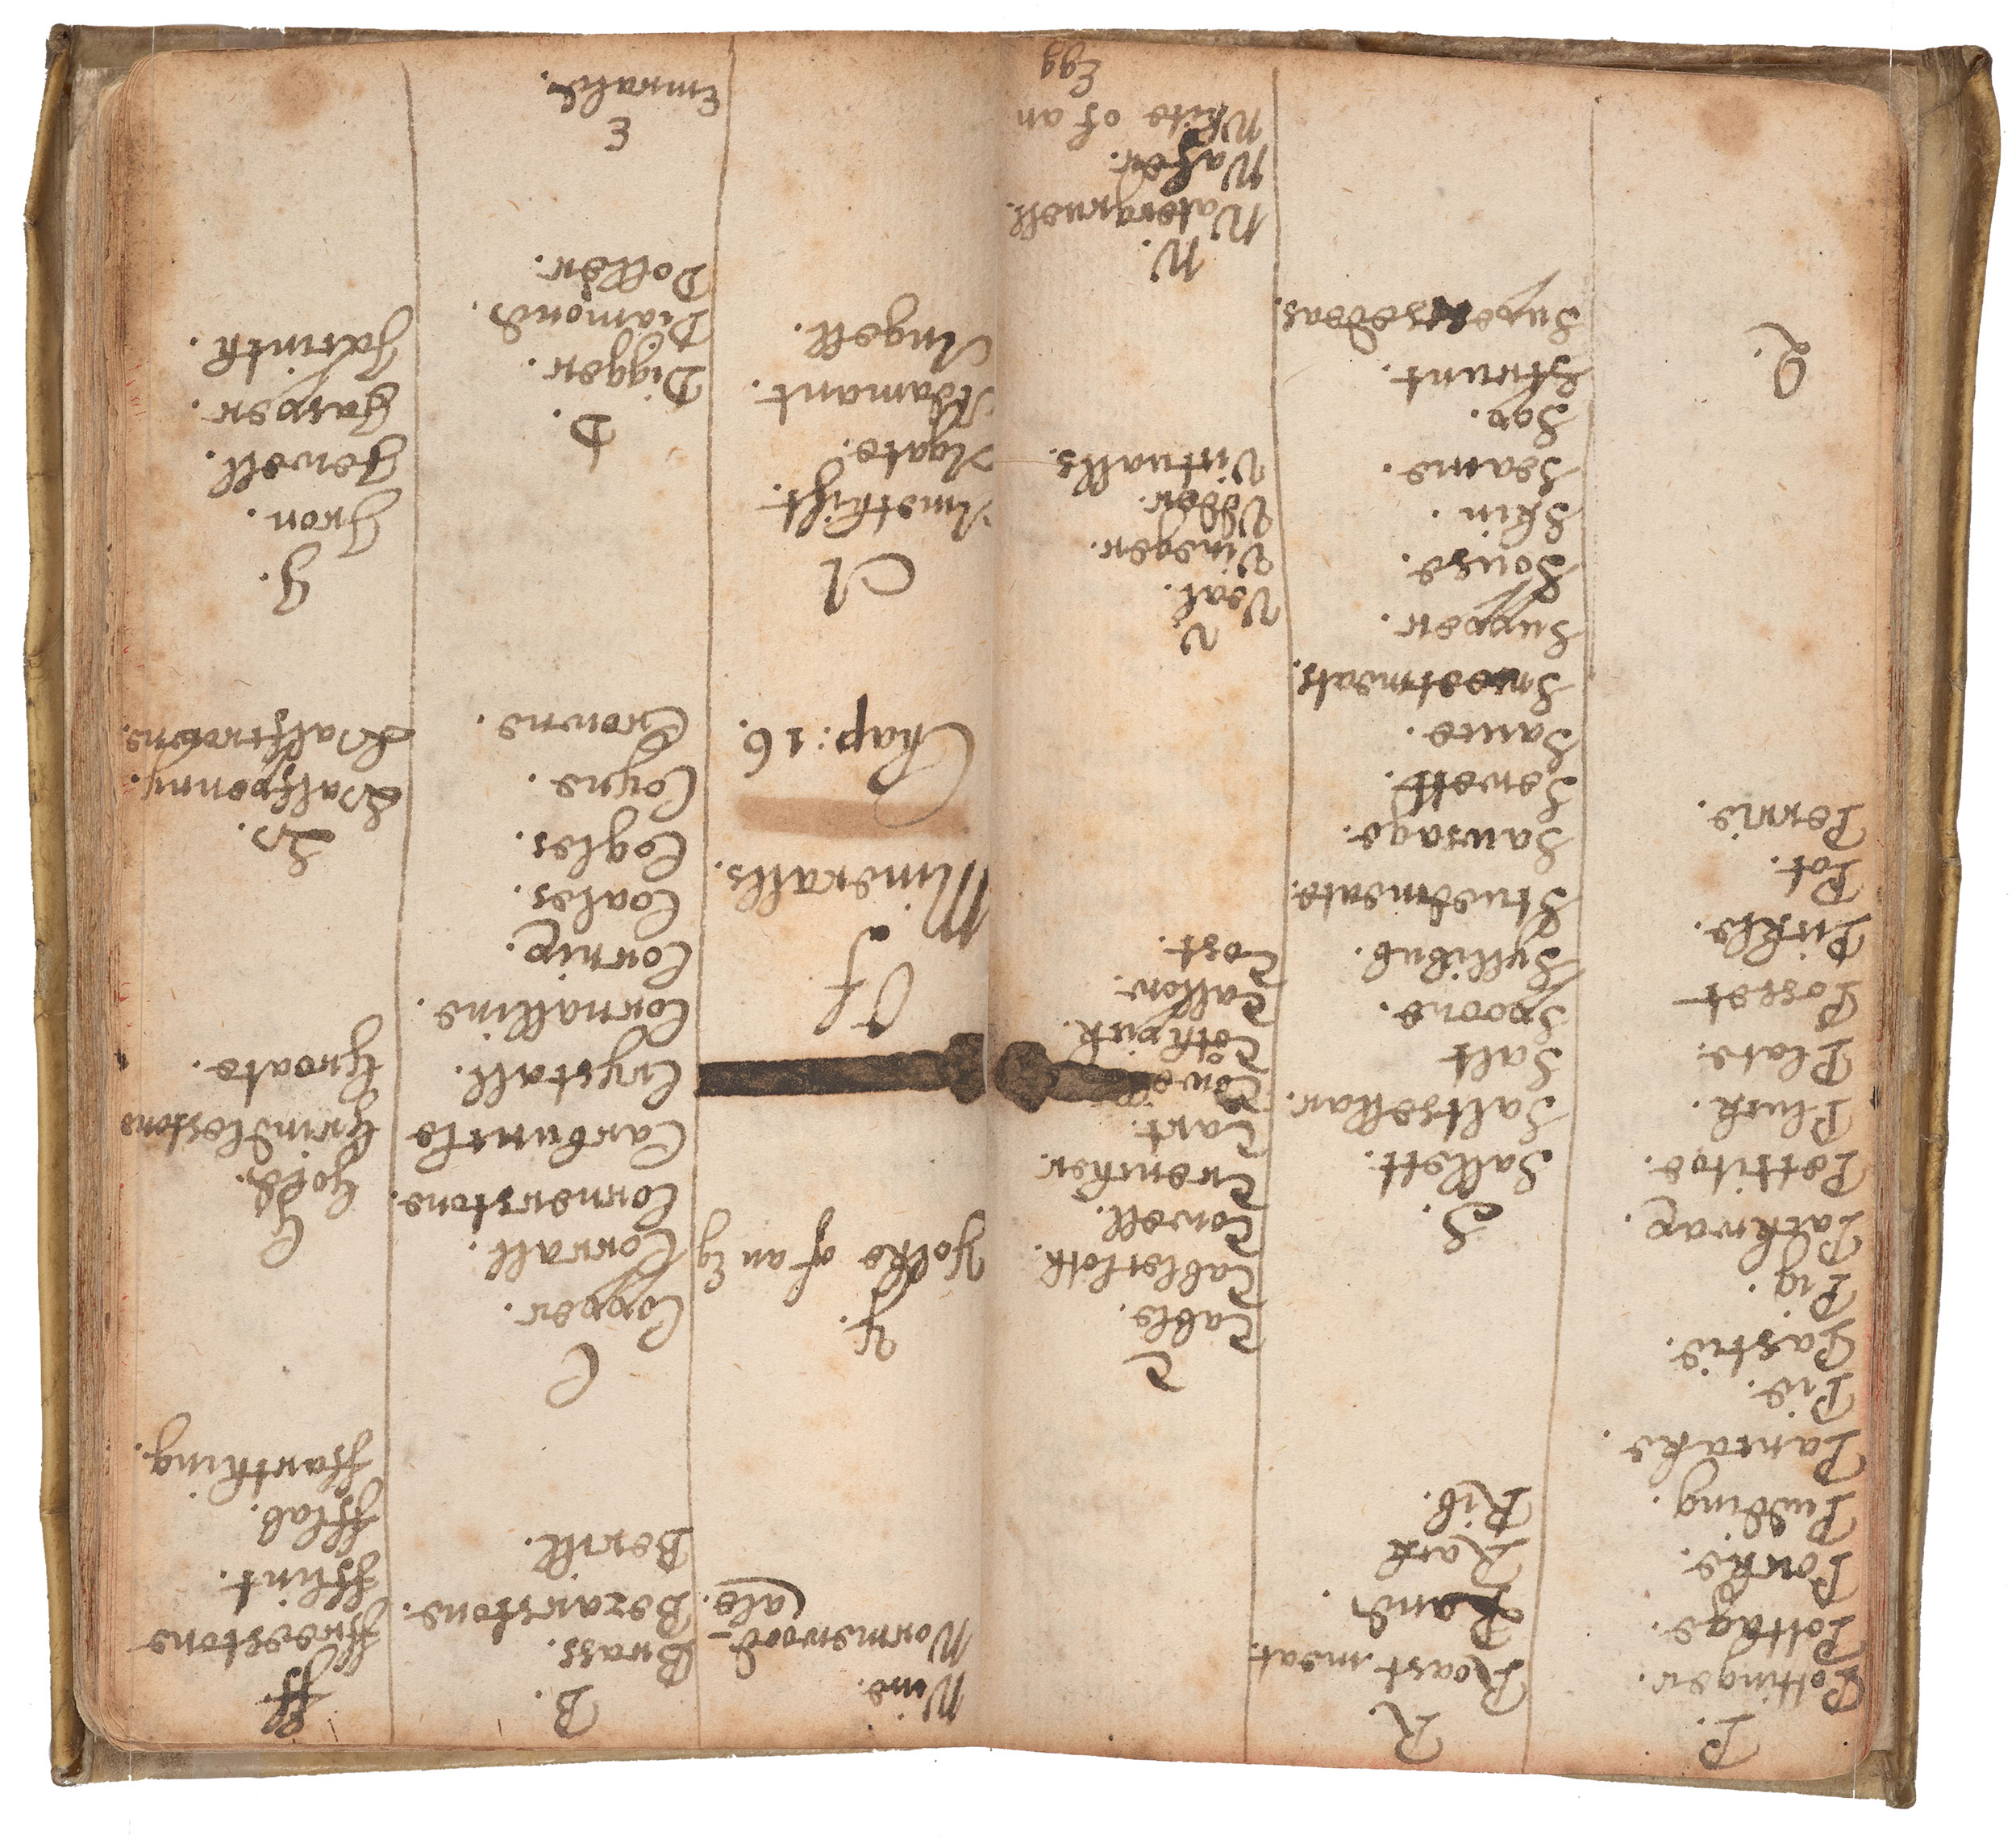 P.
Pottinger.
Pottage.
Porke.
Pudding.
Pancake.
Pie.
Pastie.
Pig.
Packwax.
Pettitoe.
Pluck.
Plate.
Posset
Pickle.
Pot.
Perrie.
Q.
R.
Roast meat.
Rand.
Rack
Rib.
S.
Sallett.
Saltsellar.
Salt
Spoone.
Syllibub.
Stuedmeate.
Sausage.
Sewett.
Sauce.
Sweetmeats.
Supper.
Souse.
Skin.
Seame.
Sop.
Strunt.
Supersedeas.
T
Table.
Tablecloth.
Towell.
Trencher.
Tart.
Tothpick.
Tallow.
Tost.
V
Veal.
Vineger.
Vdder.
Victualls.
W.
Watergruell.
Wafer.
White of an
Egg
Wine.
Wormewood-
ale.
Y.
Yolke of an Eg
Of
Mineralls.
Chap: 16.
A
Amethist.
Agate.
Adamant.
Angell.
B.
Brass.
Bezarstone.
Berill.
C
Copper.
Corrall.
Cornerstone.
Carbuncle
Crystall.
Cornalline.
Coales.
Cogles.
Coyne.
Crowne.
D.
Digger.
Diamond.
Doller.
E
Emrald.
ff
ffreestone
fflint.
ffarthing.
G
Gold.
Grindlestone
Groate.
H.
Halfpenny.
Halfcrowne.
J.
Jron.
Jewell.
Jasper.
Jacinth.